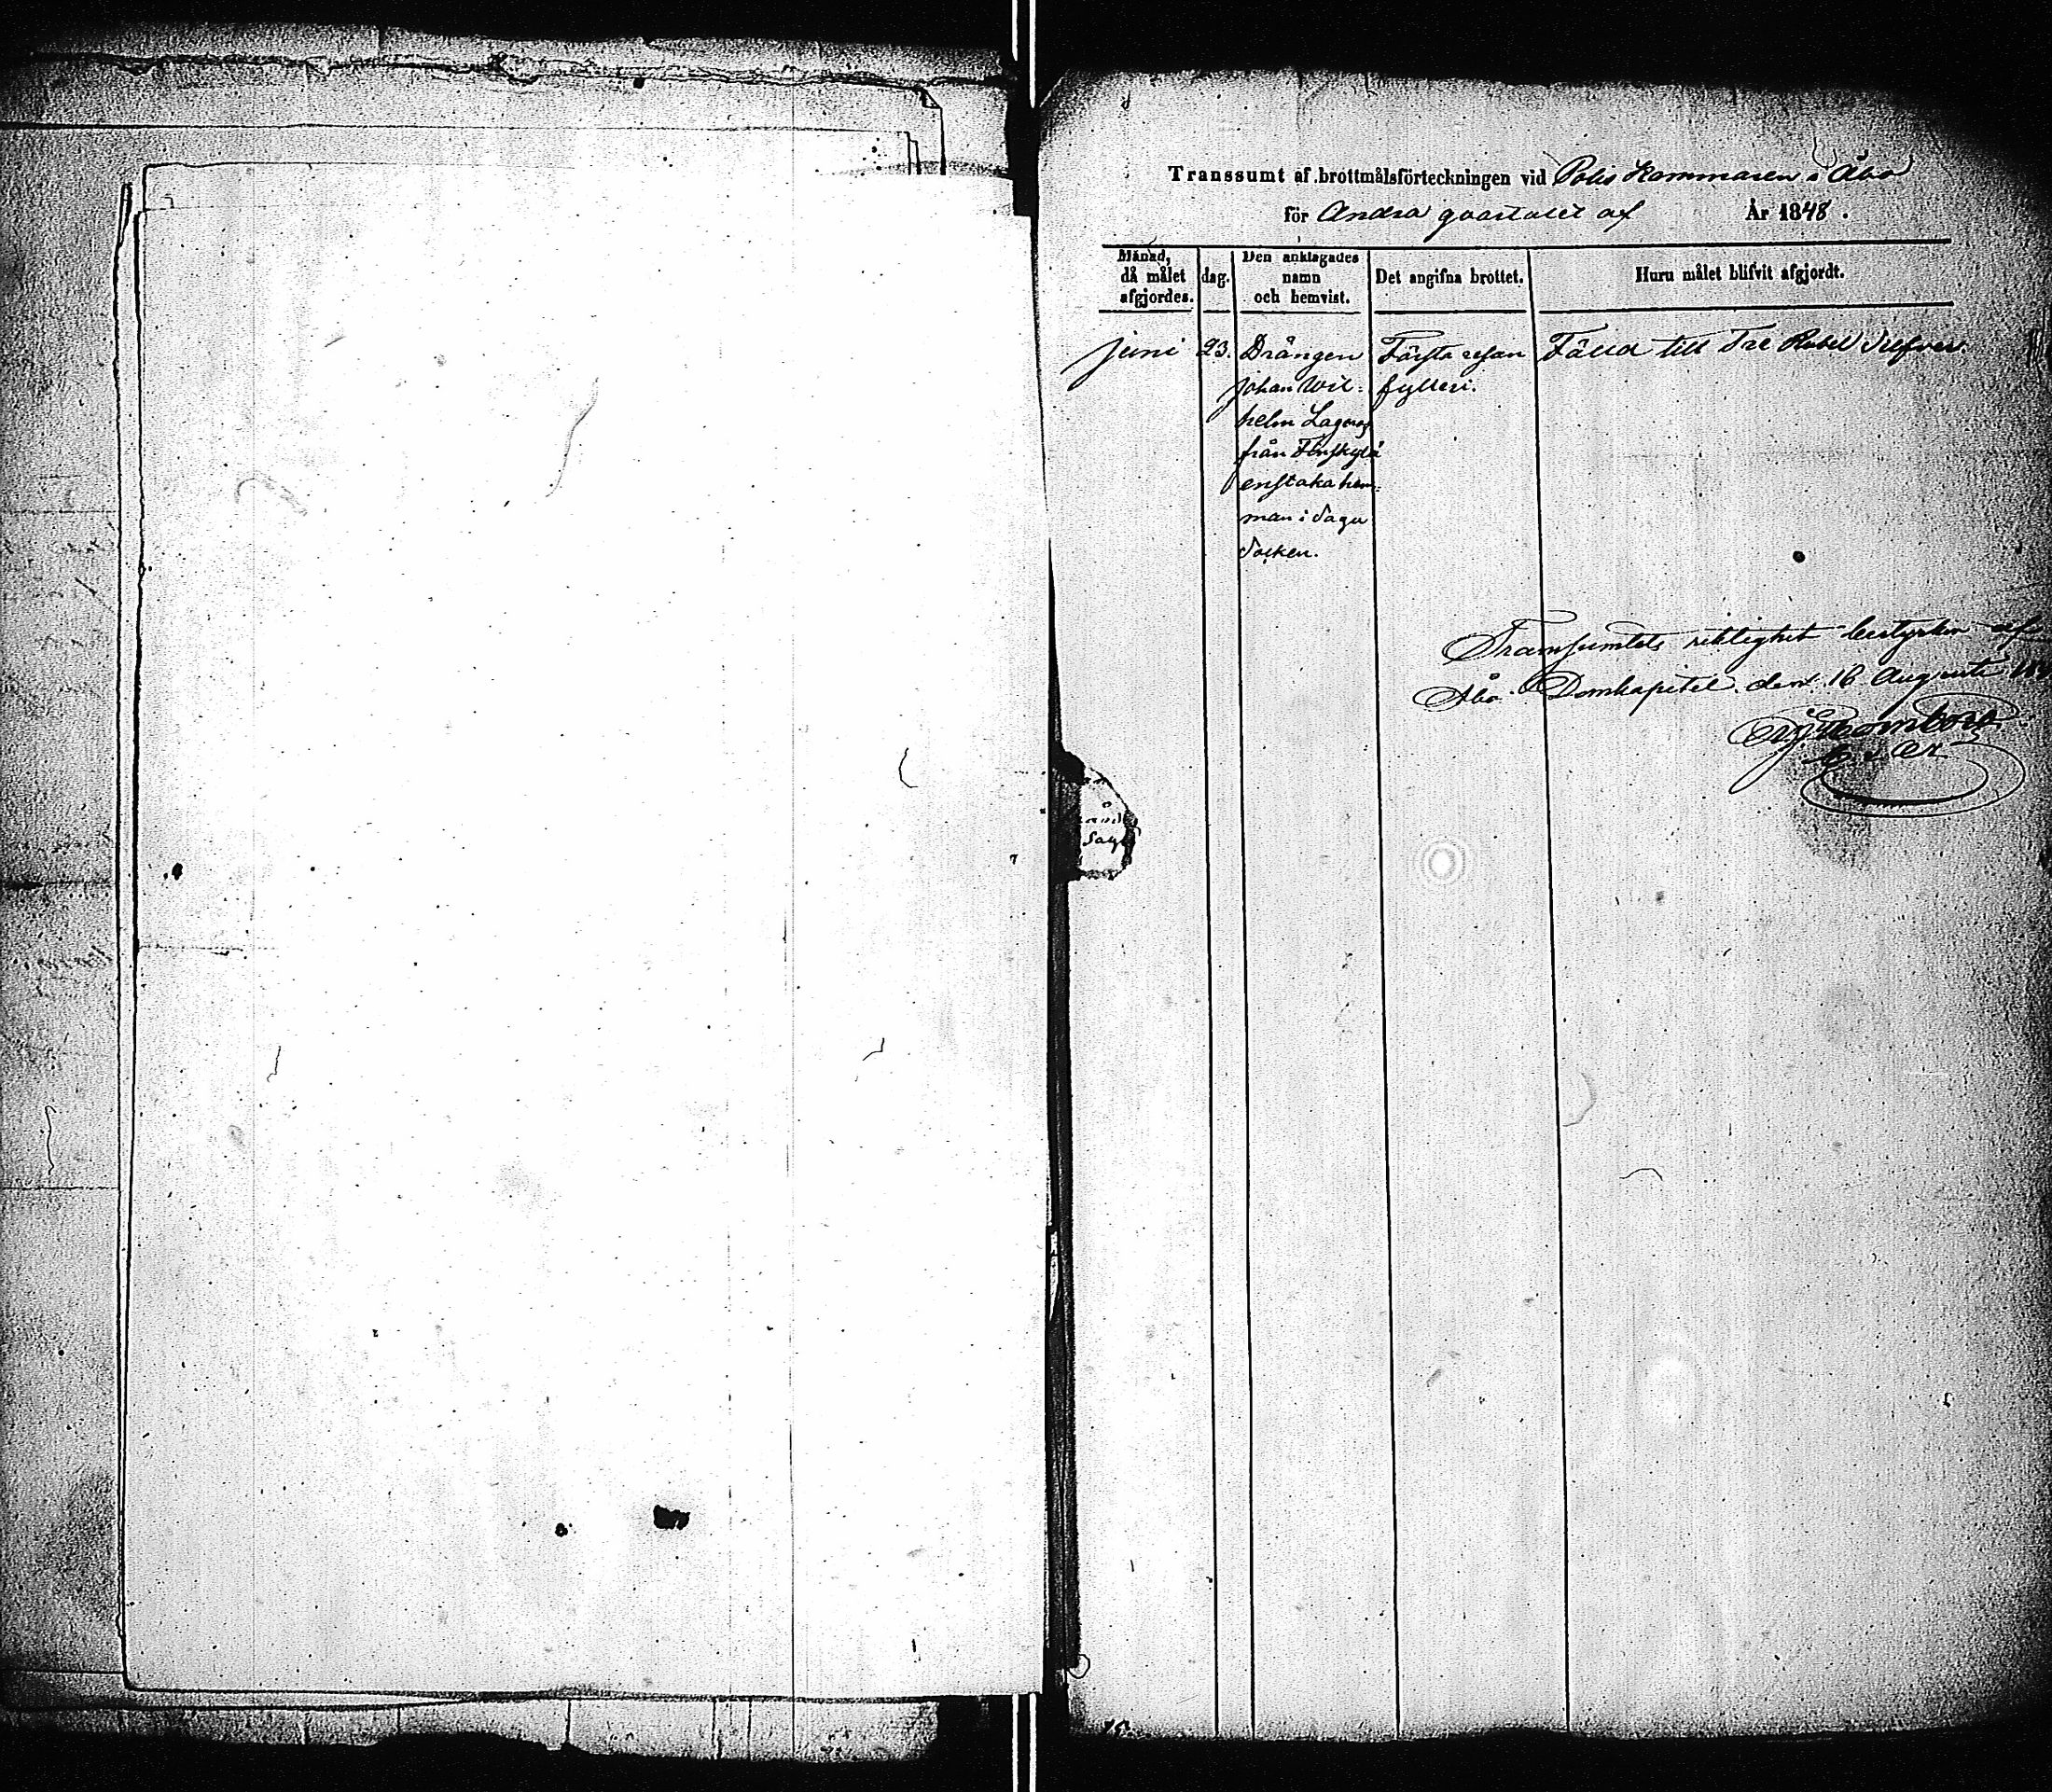 Transsumt af brottmålsförteckningen vid Polis Kammaren i Åbo
för Andra qvartalet af År 1848.
Månad, då målet afgjordes.
dag.
Den anklagades namn och hemvist.
Det angifna brottet.
Huru målet blifvit afgjordt.
Juni 23. Drängen Första resan Fälld till Tre Rubel Silfver.
Johan Wil- fylleri.
helm
från
enstaka hem-
man i Sagu
Socken.
Transumtets riktighet bestyrker af
Åbo Domkapitel den 16 Augusti
Sagu